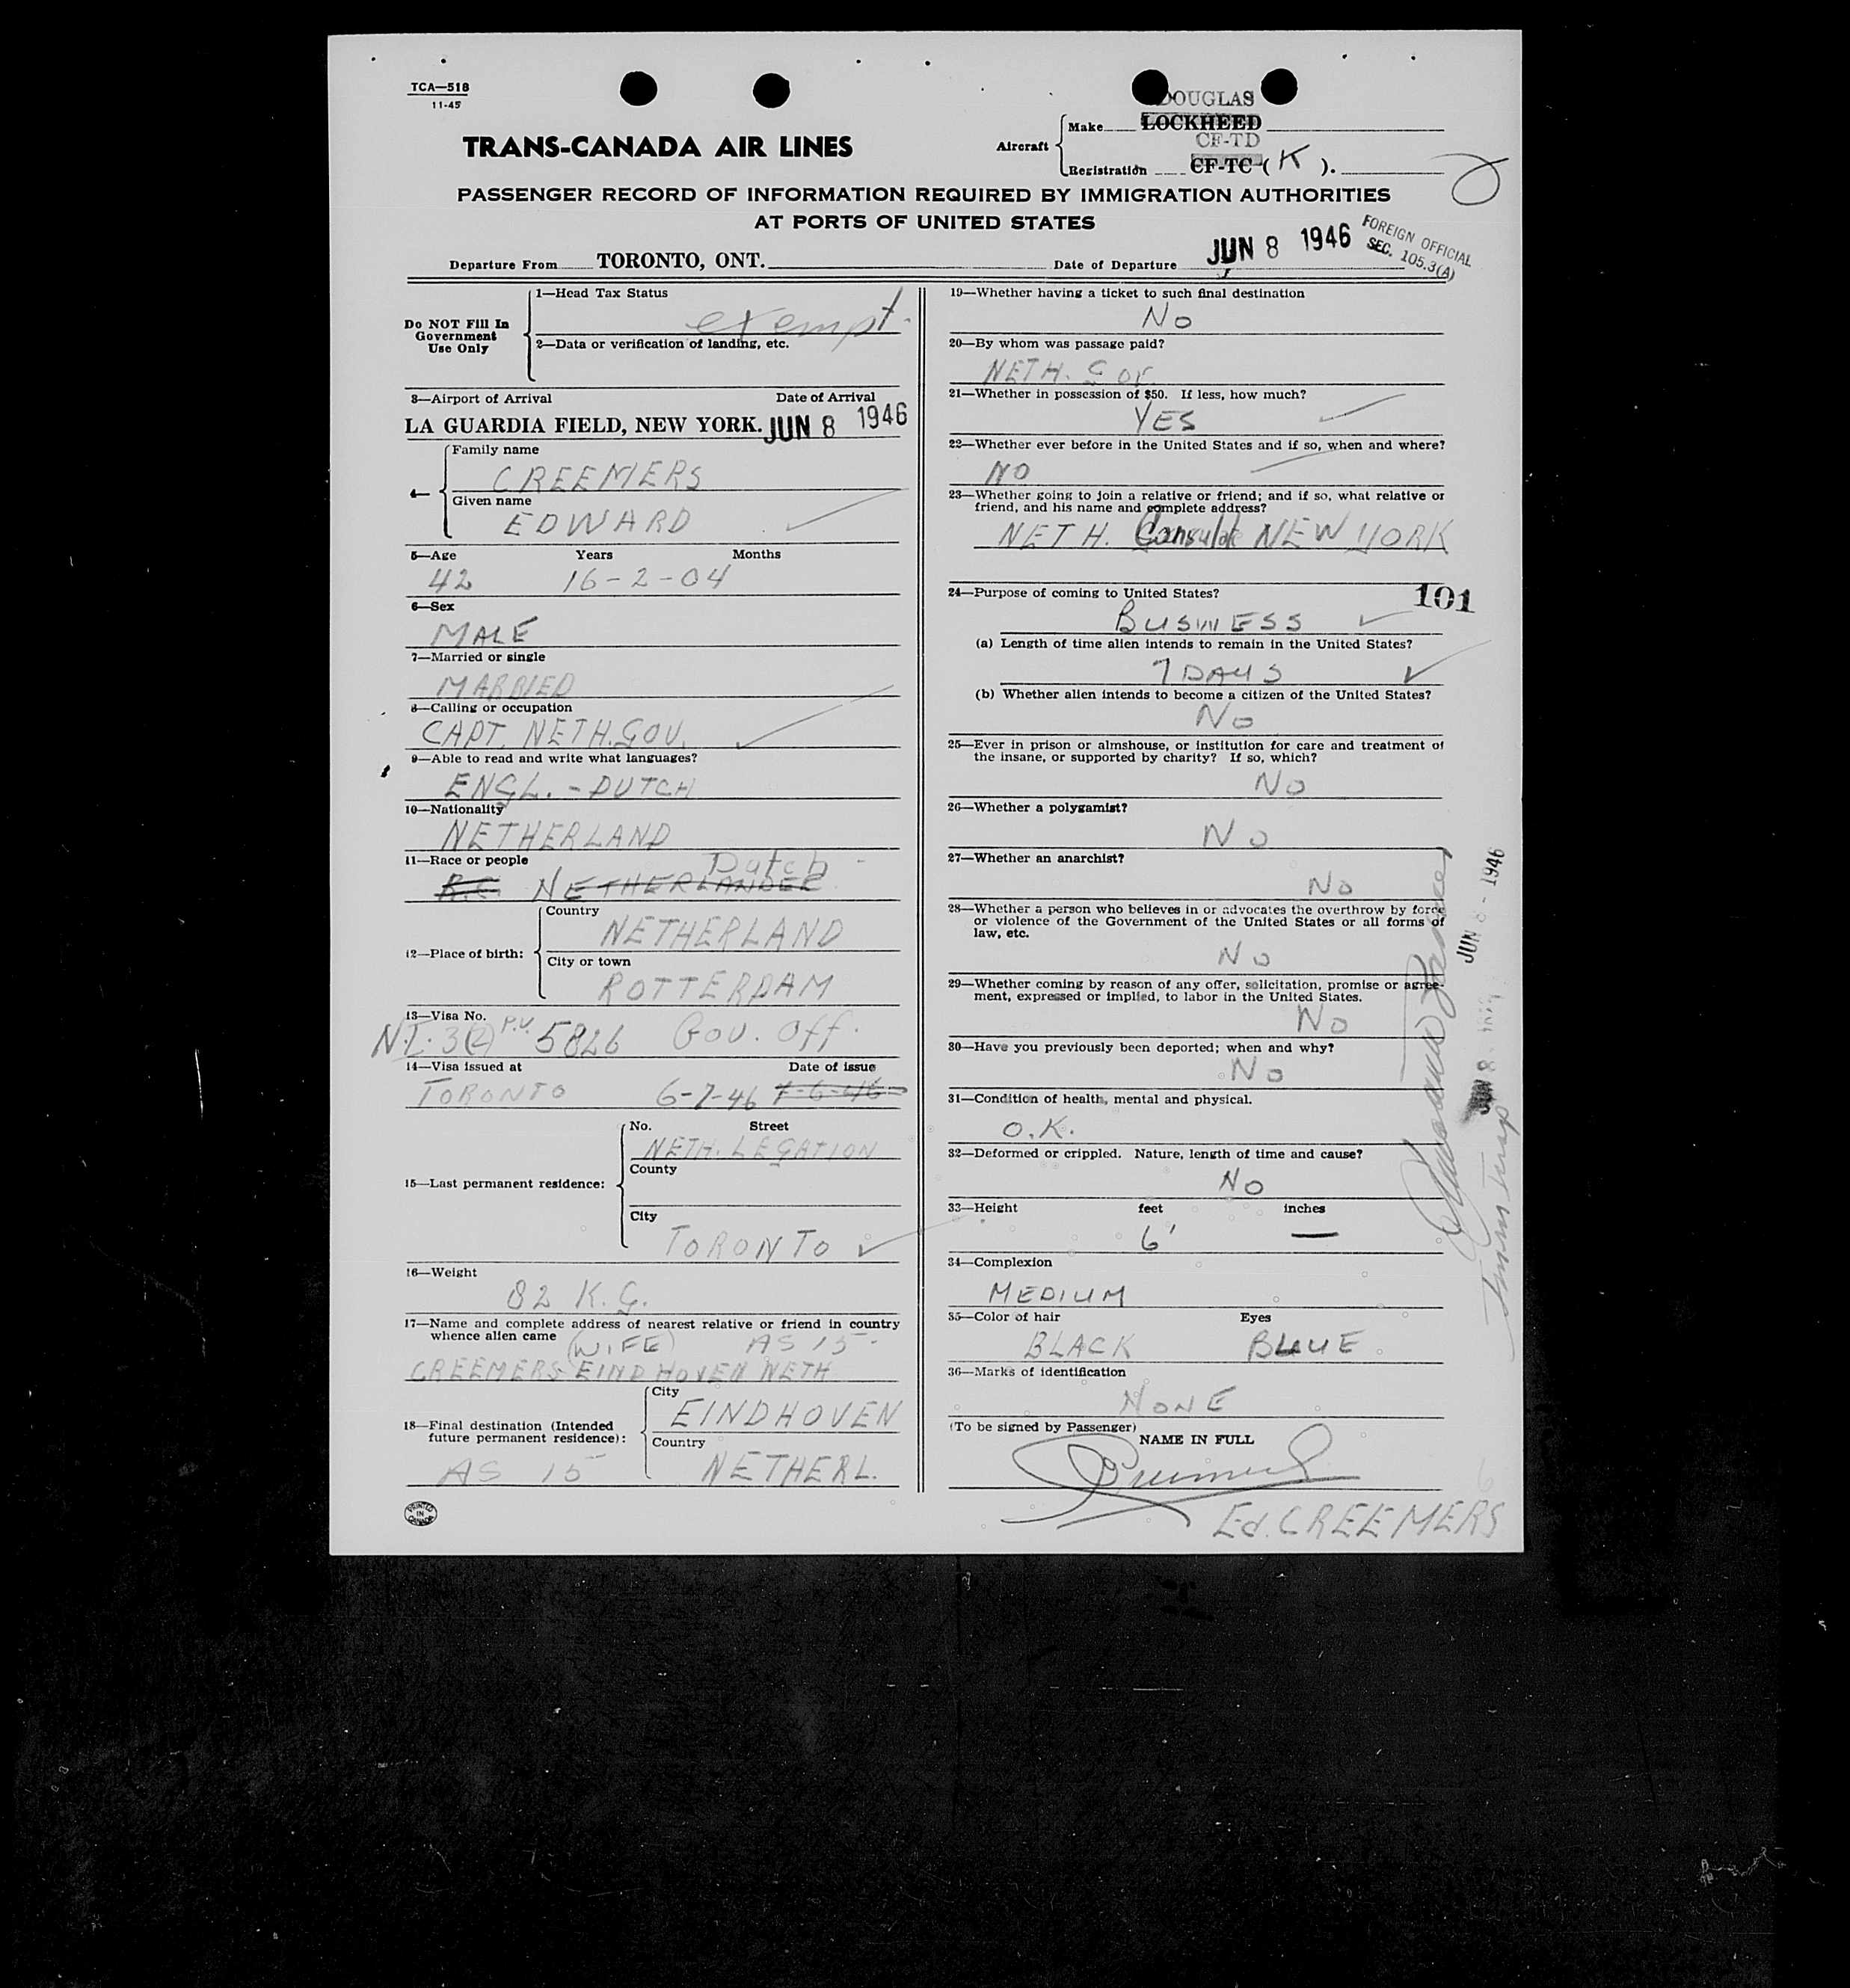 TCA—518
11-45
TRANS-CANADA AIR LINES
DOUGLAS
Aircraft
Make LOCKHEED
CF-TD
Registration CF-TC-( K ).
PASSENGER RECORD OF INFORMATION REQUIRED BY IMMIGRATION AUTHORITIES
AT PORTS OF UNITED STATES
Departure From TORONTO, ONT.
Date of Departure JUN 8 1946
FOREIGN OFFICIAL
SEC. 105.3(A)
Do NOT Fill In
Government
Use Only
1—Head Tax Status
exempt.
2—Data or verification of landing, etc.
3—Airport of Arrival Date of Arrival
LA GUARDIA FIELD, NEW YORK. JUN 8 1946
4—
Family name
CREEMERS
Given name
EDWARD
5—Age Years Months
42 16-2-04
6—Sex
MALE
7—Married or single
MARRIED
8—Calling or occupation
CAPT. NETH. GOV.
9—Able to read and write what languages?
ENGL. - DUTCH
10—Nationality
NETHERLAND
11—Race or people
Dutch
R.C. NETHERLANDER
12—Place of birth:
Country
NETHERLAND
City or town
ROTTERDAM
13—Visa No.
N.I. 3(2) P.V. 5826 Gov. Off.
14—Visa issued at Date of issue
TORONTO 6-7-46 7-6-46
15—Last permanent residence:
No. Street
NETH. LEGATION
County
City
TORONTO
16—Weight
82 K.G.
17—Name and complete address of nearest relative or friend in country
whence alien came
(WIFE) AS 15-
CREEMERS EINDHOVEN NETH
18—Final destination (Intended
future permanent residence):
AS 15
City
EINDHOVEN
Country
NETHERL.
PRINTED
IN
CANADA
19—Whether having a ticket to such final destination
No
20—By whom was passage paid?
NETH. Gov.
21—Whether in possession of $50. If less, how much?
YES
22—Whether ever before in the United States and if so, when and where?
NO
23—Whether going to join a relative or friend; and if so, what relative or
friend, and his name and complete address?
NETH. Consulate NEW YORK
24—Purpose of coming to United States?
101
BUSINESS
(a) Length of time alien intends to remain in the United States?
7 DAYS
(b) Whether alien intends to become a citizen of the United States?
No
25—Ever in prison or almshouse, or institution for care and treatment of
the insane, or supported by charity? If so, which?
No
26—Whether a polygamist?
No
27—Whether an anarchist?
No
28—Whether a person who believes in or advocates the overthrow by force
or violence of the Government of the United States or all forms of
law, etc.
No
29—Whether coming by reason of any offer, solicitation, promise or agree-
ment, expressed or implied, to labor in the United States.
No
30—Have you previously been deported; when and why?
No
31—Condition of health, mental and physical.
O.K.
32—Deformed or crippled. Nature, length of time and cause?
No
33—Height feet inches
6' —
34—Complexion
MEDIUM
35—Color of hair Eyes
BLACK BLUE
36—Marks of identification
NONE
(To be signed by Passenger)
NAME IN FULL
Creemers
Ed. CREEMERS
JUN 8 - 1946
JUN 8
Imm Insp